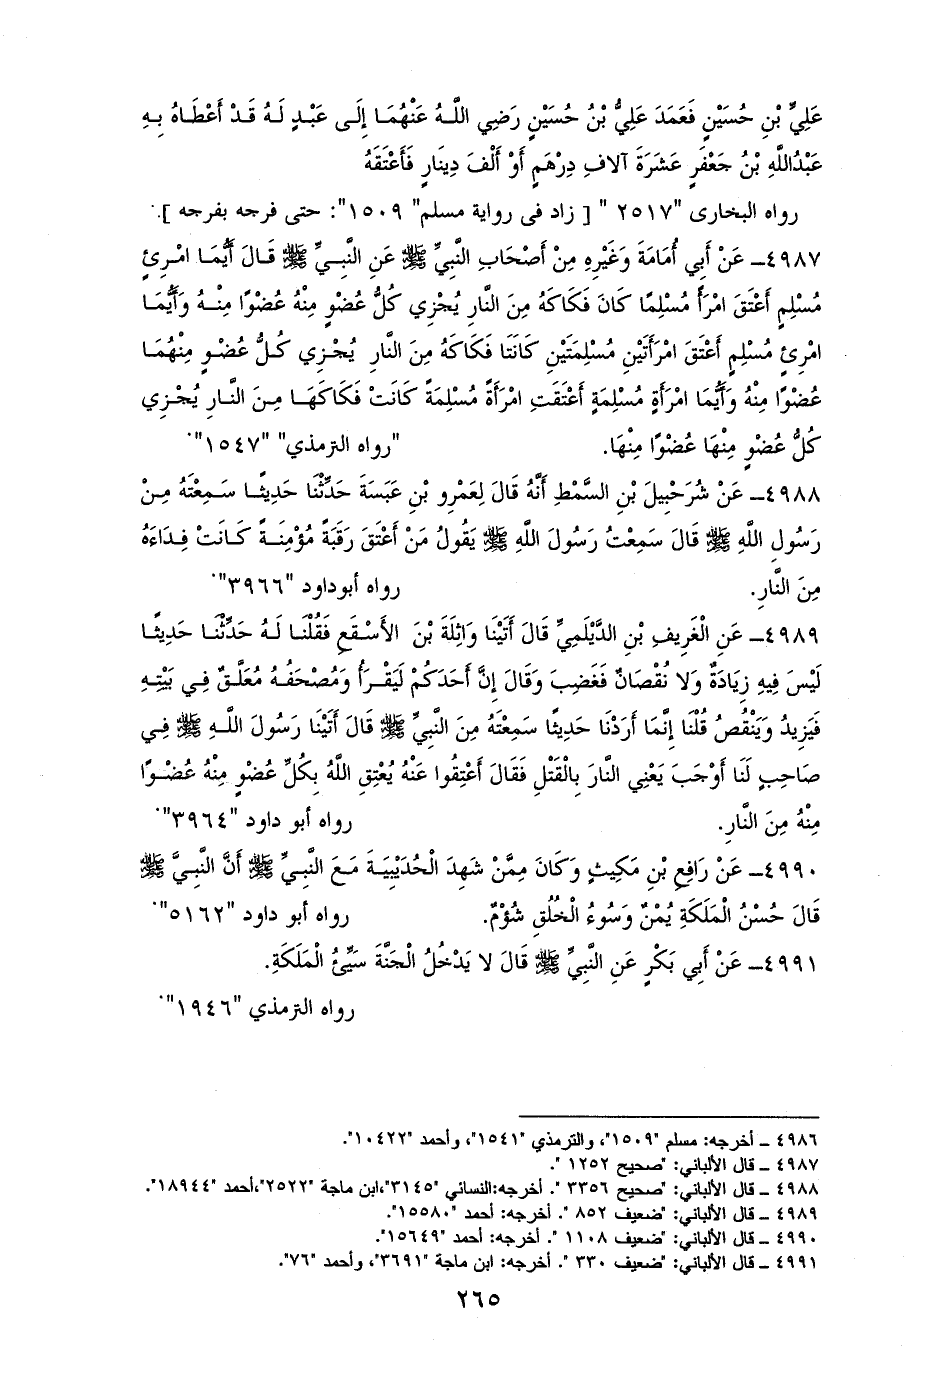 عَلِيِّ بْنِ حُسَيْنٍ فَعَمَدَ عَلِيُّ بْنُ حُسَيْنٍ رَضِي اللَّهُ عَنْهُمَا إِلَى عَبْدٍ لَهُ قَدْ أَعْطَاهُ بِهِ
عَبْدُاللَّهِ بْنُ جَعْفَرٍ عَشَرَةَ آلافِ دِرْهَمٍ أَوْ أَلْفَ دِينَارٍ فَأَعْتَقَهُ
رواه البخارى "٢٥١٧ " [ زاد فى رواية مسلم" ١٥٠٩": حتى فرجه بفرجه ].
٤٩٨٧ـ عَنْ أَبِي أُمَامَةَ وَغَيْرِهِ مِنْ أَصْحَابِ النَّبِيِّ ﷺ عَنِ النَّبِيِّ ﷺ قَالَ أَيُّمَا امْرِئٍ
مُسْلِمٍ أَعْتَقَ امْرَأً مُسْلِمًا كَانَ فَكَاكَهُ مِنَ النَّارِ يُجْزِي كُلُّ عُضْوٍ مِنْهُ عُضْوًا مِنْهُ وَأَيُّمَا
امْرِئٍ مُسْلِمٍ أَعْتَقَ امْرَأَتَيْنِ مُسْلِمَتَيْنِ كَانَتَا فَكَاكَهُ مِنَ النَّارِ يُجْزِي كُلُّ عُضْوٍ مِنْهُمَا
عُضْوًا مِنْهُ وَأَيُّمَا امْرَأَةٍ مُسْلِمَةٍ أَعْتَقَتِ امْرَأَةً مُسْلِمَةً كَانَتْ فَكَاكَهَا مِنَ النَّارِ يُجْزِي
كُلُّ عُضْوٍ مِنْهَا عُضْوًا مِنْهَا. "رواه الترمذي" "١٥٤٧".
٤٩٨٨ـ عَنْ شُرَحْبِيلَ بْنِ السَّمْطِ أَنَّهُ قَالَ لِعَمْرِو بْنِ عَبَسَةَ حَدِّثْنَا حَدِيثًا سَمِعْتَهُ مِنْ
رَسُولِ اللَّهِ ﷺ قَالَ سَمِعْتُ رَسُولَ اللَّهِ ﷺ يَقُولُ مَنْ أَعْتَقَ رَقَبَةً مُؤْمِنَةً كَانَتْ فِدَاءَهُ
مِنَ النَّارِ. رواه أبوداود "٣٩٦٦".
٤٩٨٩ـ عَنِ الْغَرِيفِ بْنِ الدَّيْلَمِيِّ قَالَ أَتَيْنَا وَاثِلَةَ بْنَ الأَسْقَعِ فَقُلْنَا لَهُ حَدِّثْنَا حَدِيثًا
لَيْسَ فِيهِ زِيَادَةٌ وَلا نُقْصَانٌ فَغَضِبَ وَقَالَ إِنَّ أَحَدَكُمْ لَيَقْرَأُ وَمُصْحَفُهُ مُعَلَّقٌ فِي بَيْتِهِ
فَيَزِيدُ وَيَنْقُصُ قُلْنَا إِنَّمَا أَرَدْنَا حَدِيثًا سَمِعْتَهُ مِنَ النَّبِيِّ ﷺ قَالَ أَتَيْنَا رَسُولَ اللَّهِ ﷺ فِي
صَاحِبٍ لَنَا أَوْجَبَ يَعْنِي النَّارَ بِالْقَتْلِ فَقَالَ أَعْتِقُوا عَنْهُ يُعْتِقِ اللَّهُ بِكُلِّ عُضْوٍ مِنْهُ عُضْوًا
مِنْهُ مِنَ النَّارِ. رواه أبو داود "٣٩٦٤".
٤٩٩٠ـ عَنْ رَافِعِ بْنِ مَكِيثٍ وَكَانَ مِمَّنْ شَهِدَ الْحُدَيْبِيَةَ مَعَ النَّبِيِّ ﷺ أَنَّ النَّبِيَّ ﷺ
قَالَ حُسْنُ الْمَلَكَةِ يُمْنٌ وَسُوءُ الْخُلُقِ شُؤْمٌ. رواه أبو داود "٥١٦٢".
٤٩٩١ـ عَنْ أَبِي بَكْرٍ عَنِ النَّبِيِّ ﷺ قَالَ لا يَدْخُلُ الْجَنَّةَ سَيِّئُ الْمَلَكَةِ.
رواه الترمذي "١٩٤٦".
٤٩٨٦ ـ أخرجه: مسلم "١٥٠٩"، والترمذي "١٥٤١"، وأحمد "١٠٤٢٢".
٤٩٨٧ ـ قال الألباني: "صحيح ١٢٥٢ ".
٤٩٨٨ ـ قال الألباني: "صحيح ٣٣٥٦ ". أخرجه:النسائي "٣١٤٥"،ابن ماجة "٢٥٢٢"،أحمد "١٨٩٤٤".
٤٩٨٩ ـ قال الألباني: "ضعيف ٨٥٢ ". أخرجه: أحمد "١٥٥٨٠".
٤٩٩٠ ـ قال الألباني: "ضعيف ١١٠٨ ". أخرجه: أحمد "١٥٦٤٩".
٤٩٩١ ـ قال الألباني: "ضعيف ٣٣٠ ". أخرجه: ابن ماجة "٣٦٩١"، وأحمد "٧٦".
٢٦٥